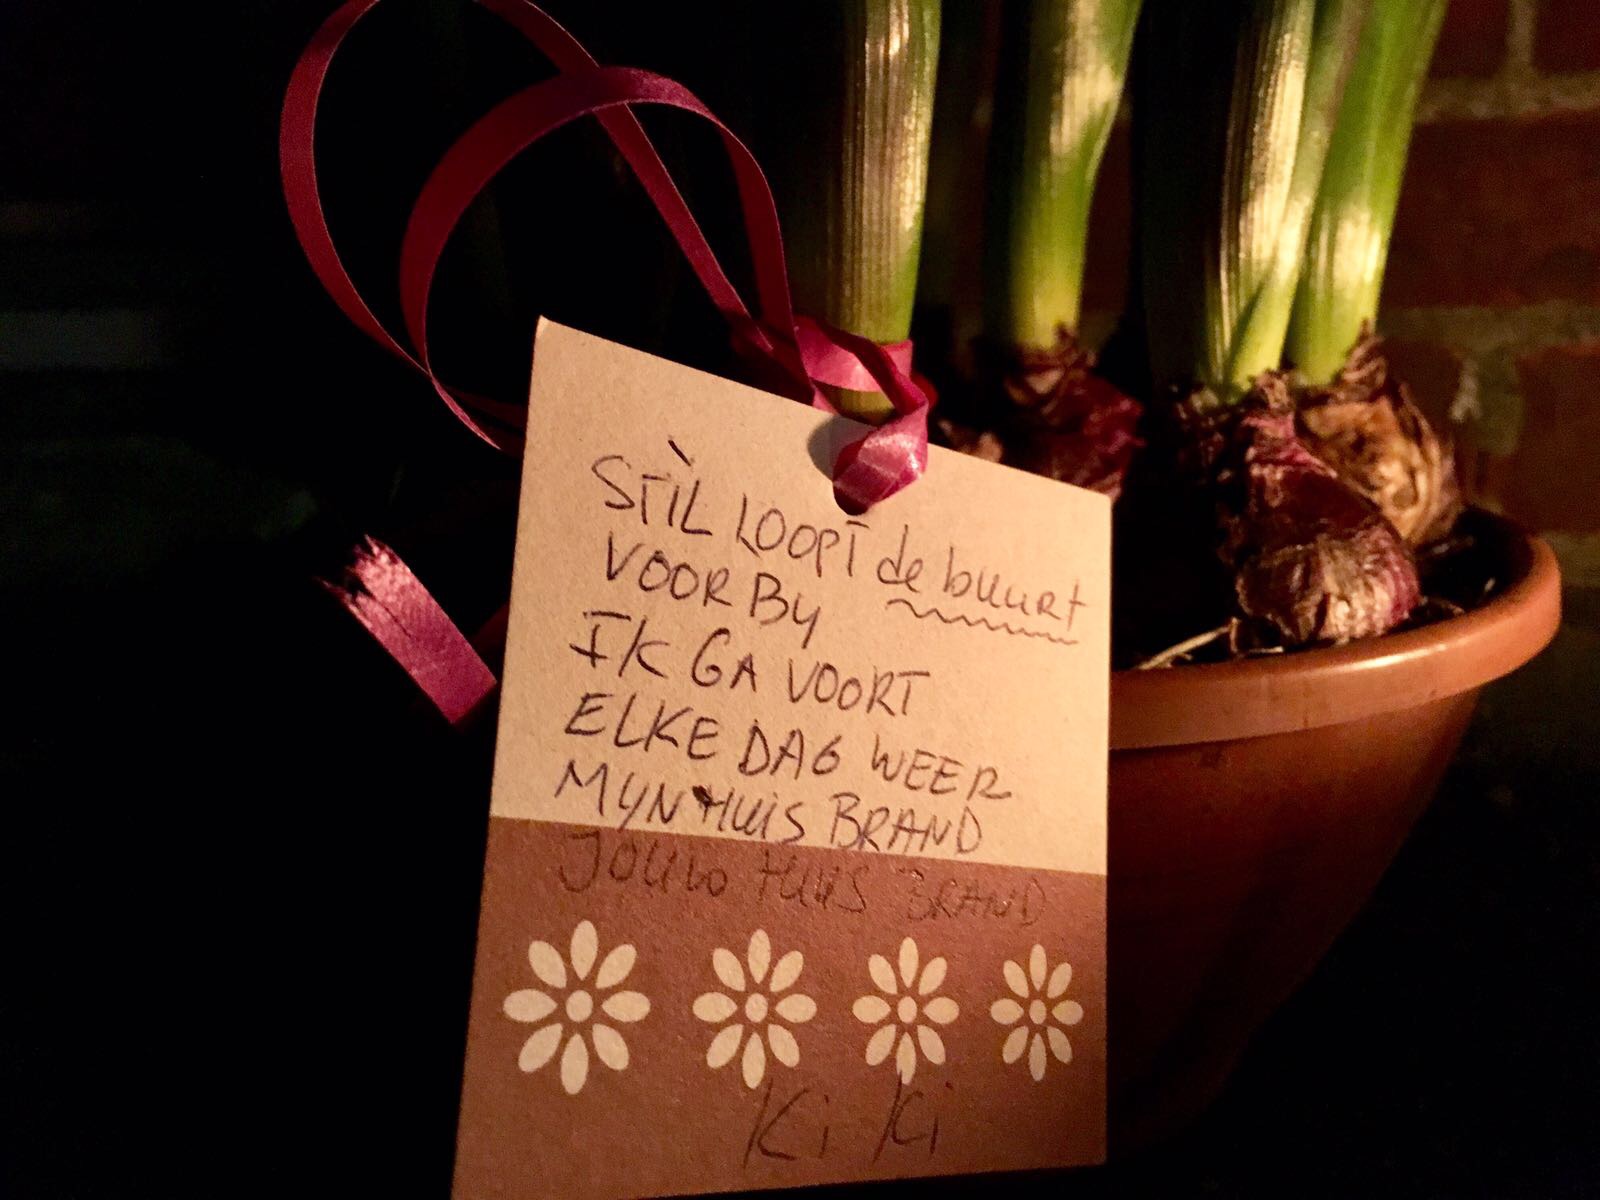 STÌL LOOPT de buurt
VOORBY
IK GA VOORT
ELKE DAG WEER
MYN HUIS BRAND
JOUW HUIS BRAND
Ki Ki